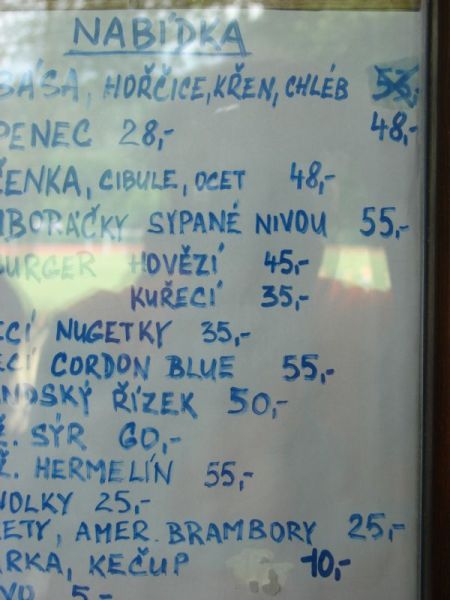 NABÍDKA
BÁSA, HOŘČICE, KŘEN, CHLÉB
PENEC 28,- 48,-
ŽENKA, CIBULE, OCET 48,-
MBORÁČKY SYPANÉ NIVOU 55,-
BURGER HOVĚZÍ 45,-
KUŘECÍ 35,-
ECÍ NUGETKY 35,-
ECÍ CORDON BLUE 55,-
ANDSKÝ ŘÍZEK 50,-
Ž. SÝR 60,-
Ž. HERMELÍN 55,-
NOLKY 25,-
KETY, AMER. BRAMBORY 25,-
ÁRKA, KEČUP 10,-
IVO 5,-